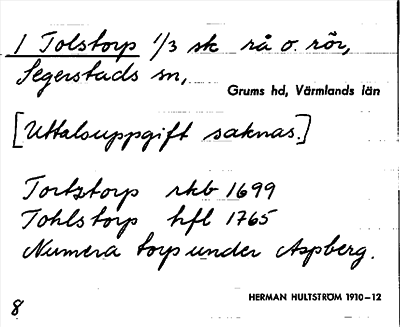 1 Tolstorp 1/3 sk rå o. rör,
Segerstads sn,
Grums hd, Värmlands län
[Uttalsuppgift saknas.]
Tortstorp rkb 1699
Tohlstorp hfl 1765
Numera torp under Aspberg.
HERMAN HULTSTRÖM 1910–12
8